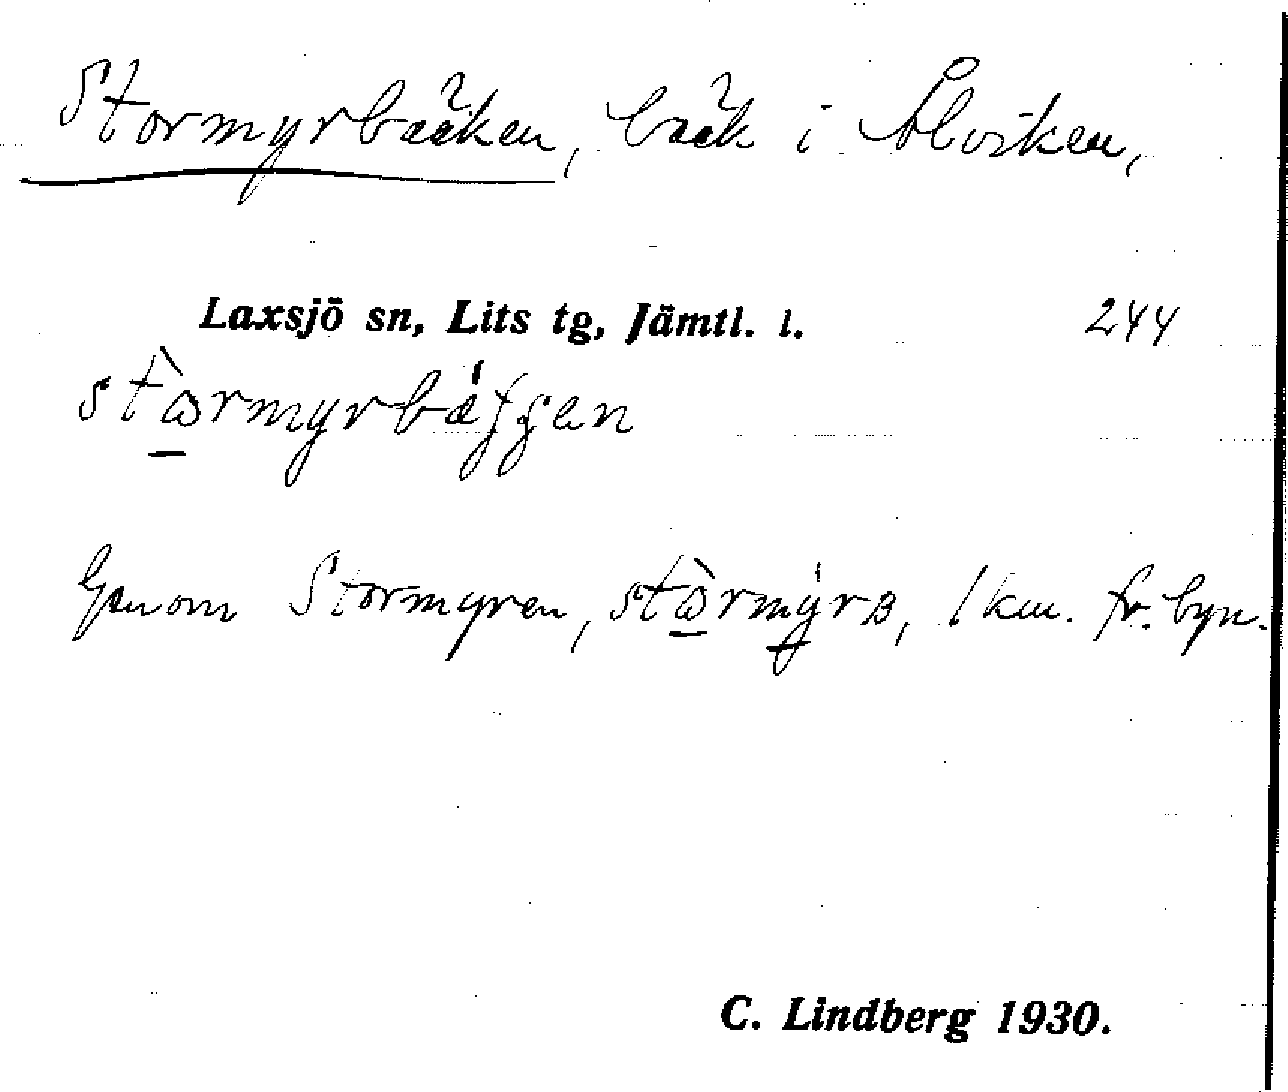 Stormyrbäcken, bäck i Ålviken,
Laxsjö sn, Lits tg, Jämtl. l. 244
Genom Stormyren, 1 km. fr. byn.
C. Lindberg 1930.